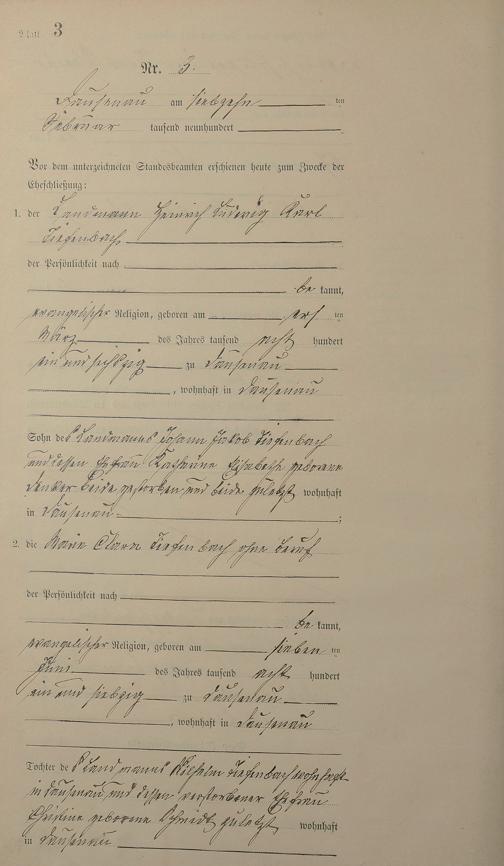 Blatt 3
Nr. 3.
Dausenau am siebzehn ten
Februar tausend neunhundert
Vor dem unterzeichneten Standesbeamten erschienen heute zum Zwecke der
Eheschließung:
1. der Landmann Heinrich Ludwig Karl
Tiefenbach
der Persönlichkeit nach
be kannt,
evangelischer Religion, geboren am ers ten
März des Jahres tausend acht hundert
ein und siebzig zu Dausenau
, wohnhaft in Dausenau
Sohn des Landmanns Johann Jakob Tiefenbach
und dessen Ehefrau Katharine Elisabeth geborene
beide gestorben und beide zuletzt wohnhaft
in Dausenau ;
2. die Marie Clara Tiefenbach ohne Beruf
der Persönlichkeit nach
be kannt,
evangelischer Religion, geboren am sieben ten
Juni des Jahres tausend acht hundert
ein und siebzig zu Dausenau
, wohnhaft in Dausenau
Tochter des Landmanns Wilhelm Tiefenbach wohnhaft
in Dausenau und dessen verstorbener Ehefrau
Christine geborene Schmidt zuletzt wohnhaft
in Dausenau